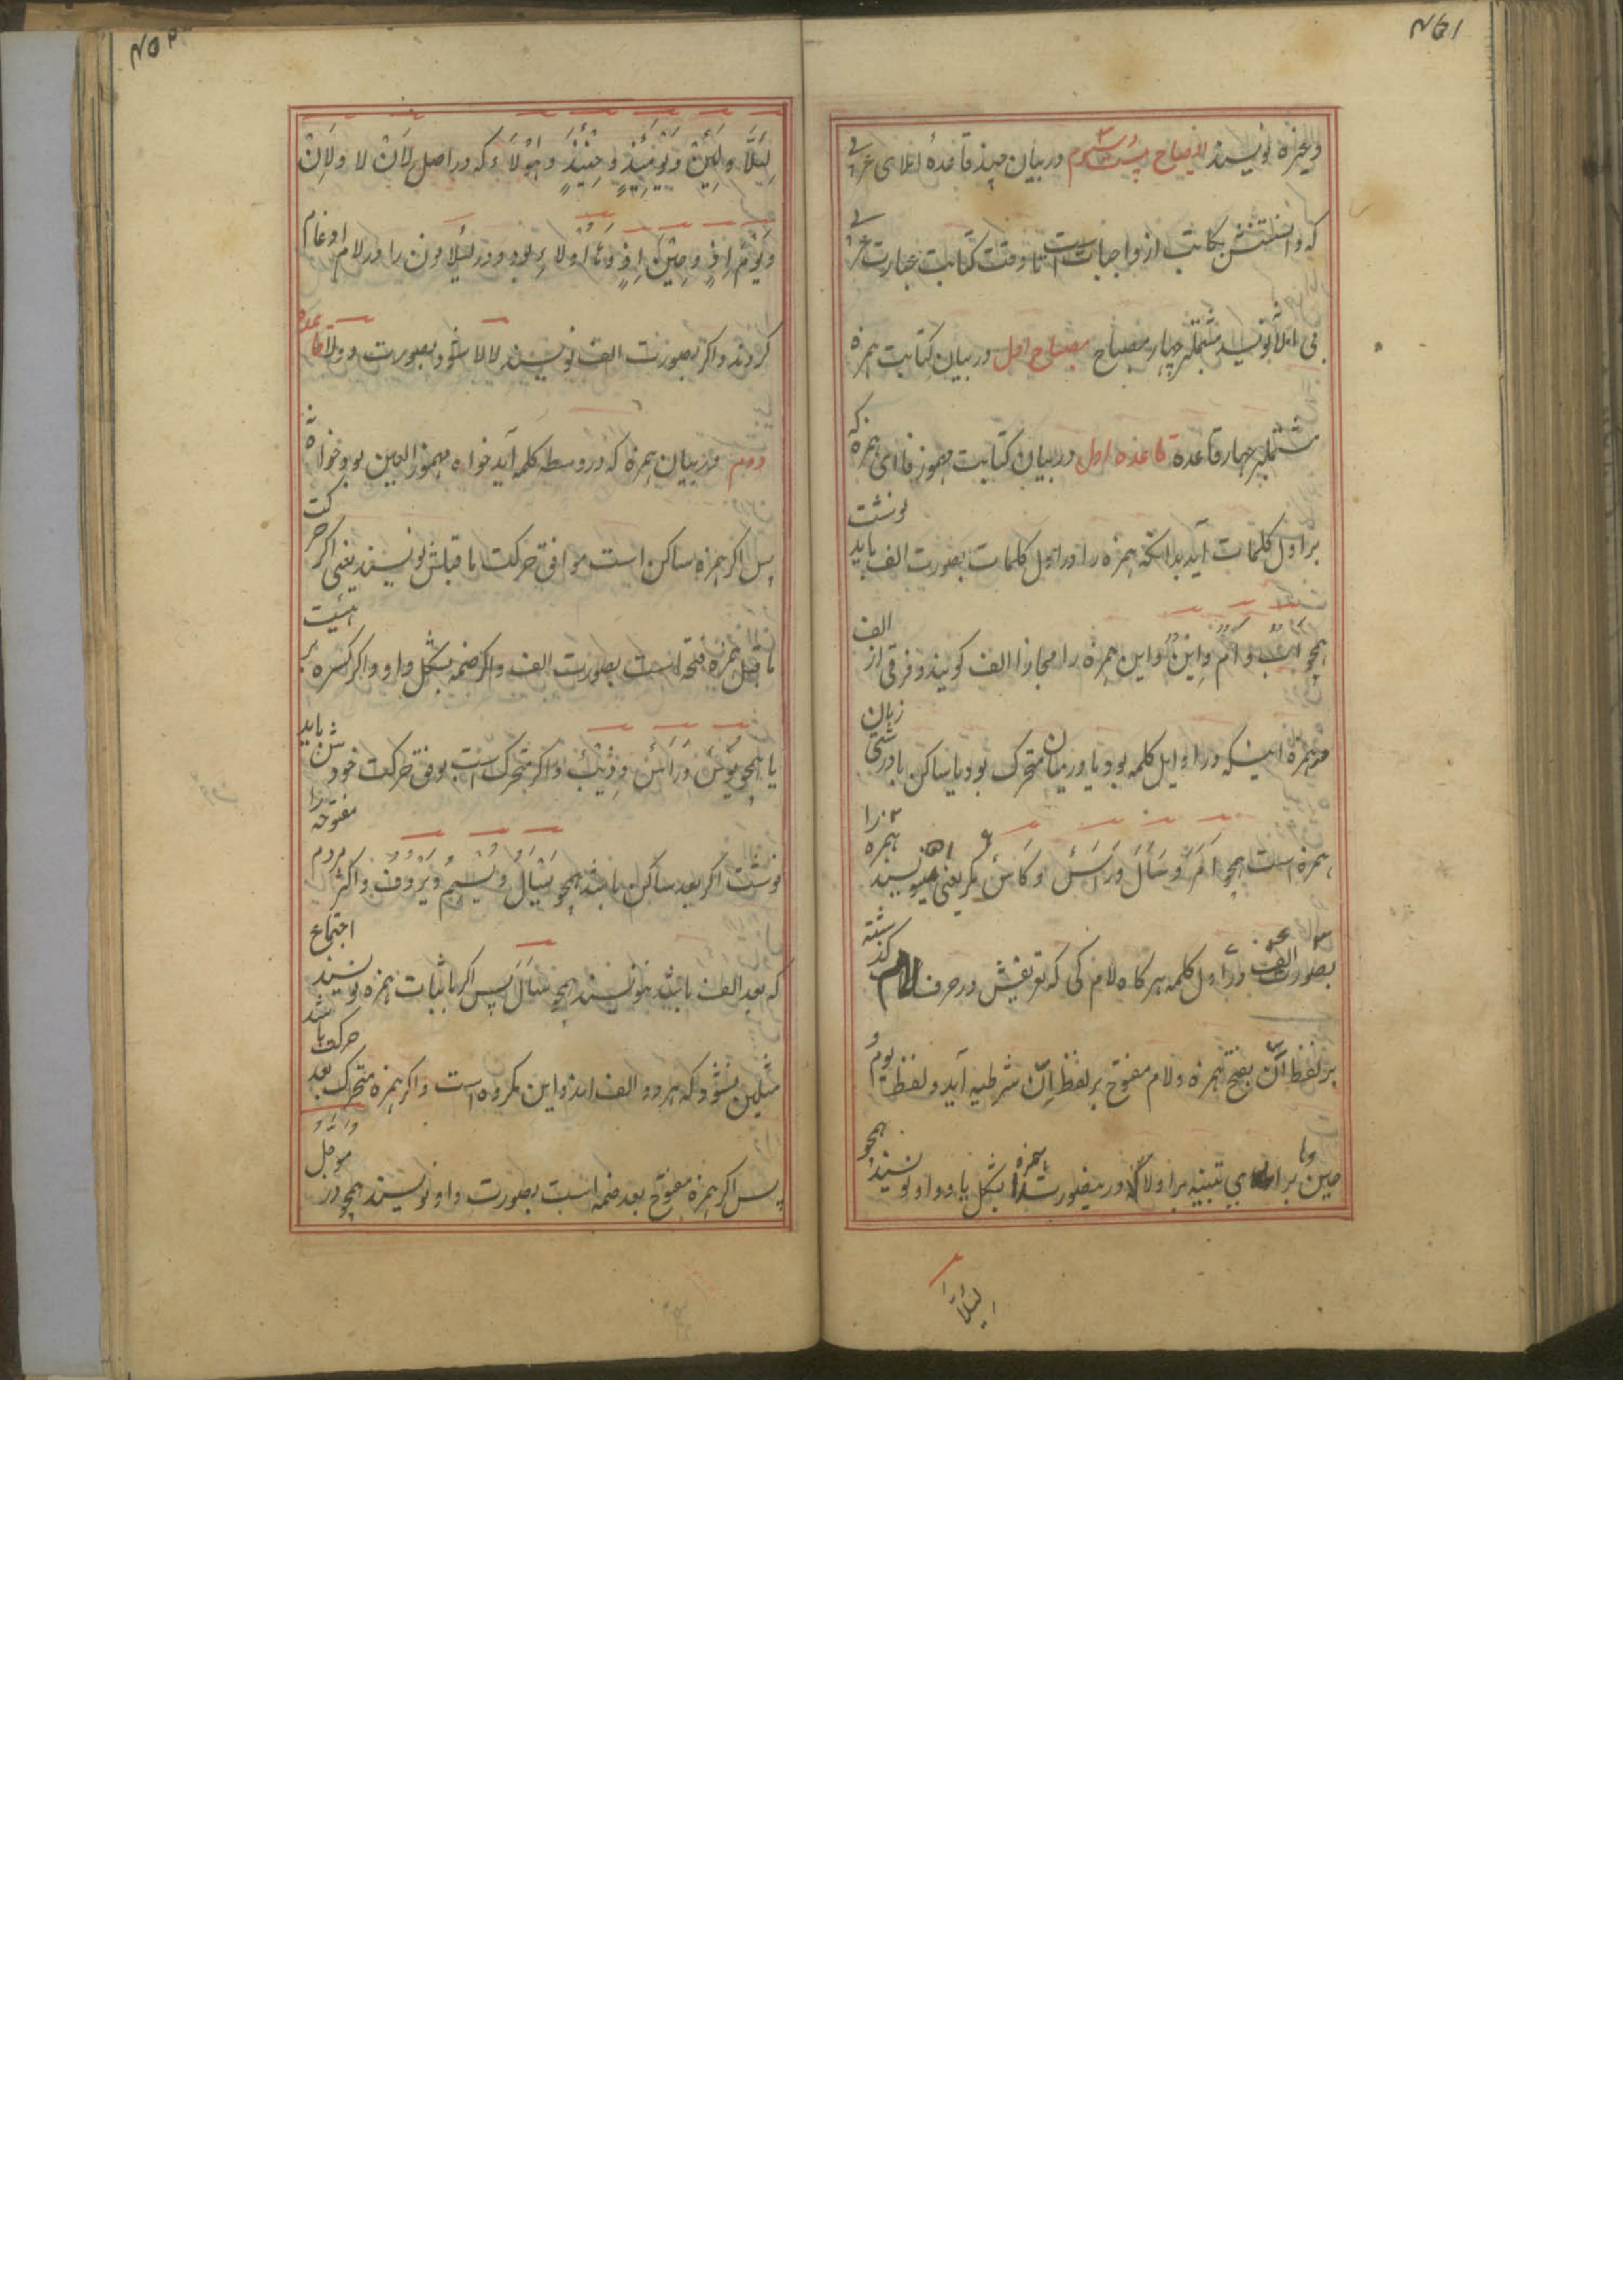 ۴۵۱
وغیره نویسند ایضاح بیست و سوم در بیان چند قاعدۀ املای عربی
که دانستنش کاتب از واجبات است تا وقت کتابت عبارت عربی
بی املا نویسد مشتملبر چهار مصباح مصباح اول در بیان کتابت همزه
مشتملبر چهار قاعده قاعده اول در بیان کتابت مهموز فا ای همزه که
بر اول کلمات آید بدانکه همزه را در اول کلمات بصورت الف باید نوشت
همچو اَبٌ و اُمٌّ و اِبنٌ و این همزه را مجازا الف کویند و فرقی از الف
و همزه اینکه در اوایل کلمه بود یا در میان متحرک بود یا ساکن بادرشتی زبان
همزه است همچو اَمَرَ و سَأَلَ و رَأسٌ و کَأسٌ مکر یعنی نمینویسند همزه را
بصورت الف در اول کلمه هر کاه لام کی که تعریفش در حرف لام کذشته
بر لفظ اَنْ بفتح همزه و لام مفتوح بر لفظ اِنْ شرطیه آید و لفظ یوم و
حین بر اذ و های تنبیه بر اولاء در ینصورت همزه را بشکل یا و واو نویسند همچو
لِئَلَّا
۴۵۲
لِئَلَّا و لَئِنْ و یَوْمَئِذٍ و حِینَئِذٍ و هٰؤُلَاءِ که در اصل لِاَنْ لا و لَاِنْ
و یَوْمَ اِذٍ و حِیْنَ اِذٍ و هَا اُولاءِ بود و در لئلا نون را در لام ادغام
کردند و اکر بصورت الف نویسند لالا شود بصورت دو لا قاعده
دوم در بیان همزه که در وسط کلمه آید خواه مهموز العین بود خواه نه
پس اکر همزه ساکن است موافق حرکت ماقبلش نویسند یعنی اکر حرکت
ماقبل همزه فتحه است بصورت الف و اکر ضمه بشکل واو و اکر کسره بر هیئت
یا همچو بُؤْسٌ و رَأْسٌ و ذِئْبٌ و اکر متحرک است بوفق حرکت خودش باید
نوشت اکر بعد ساکن باشد همچو یَسْأَلُ و یُسْئِمُ و یَرْؤُفُ و اکثر مردم مفتوحه را
که بعد الف باشد ننویسند همچو سَاءَلَ پس اکر باثبات همزه نویسند اجتماع
مثلین شود که هر دو الف اند و این مکروه است و اکر همزه متحرک بعد حرکت باشد
پس اکر همزه مفتوح بعد ضمه است بصورت واو نویسند همچو در مؤجل